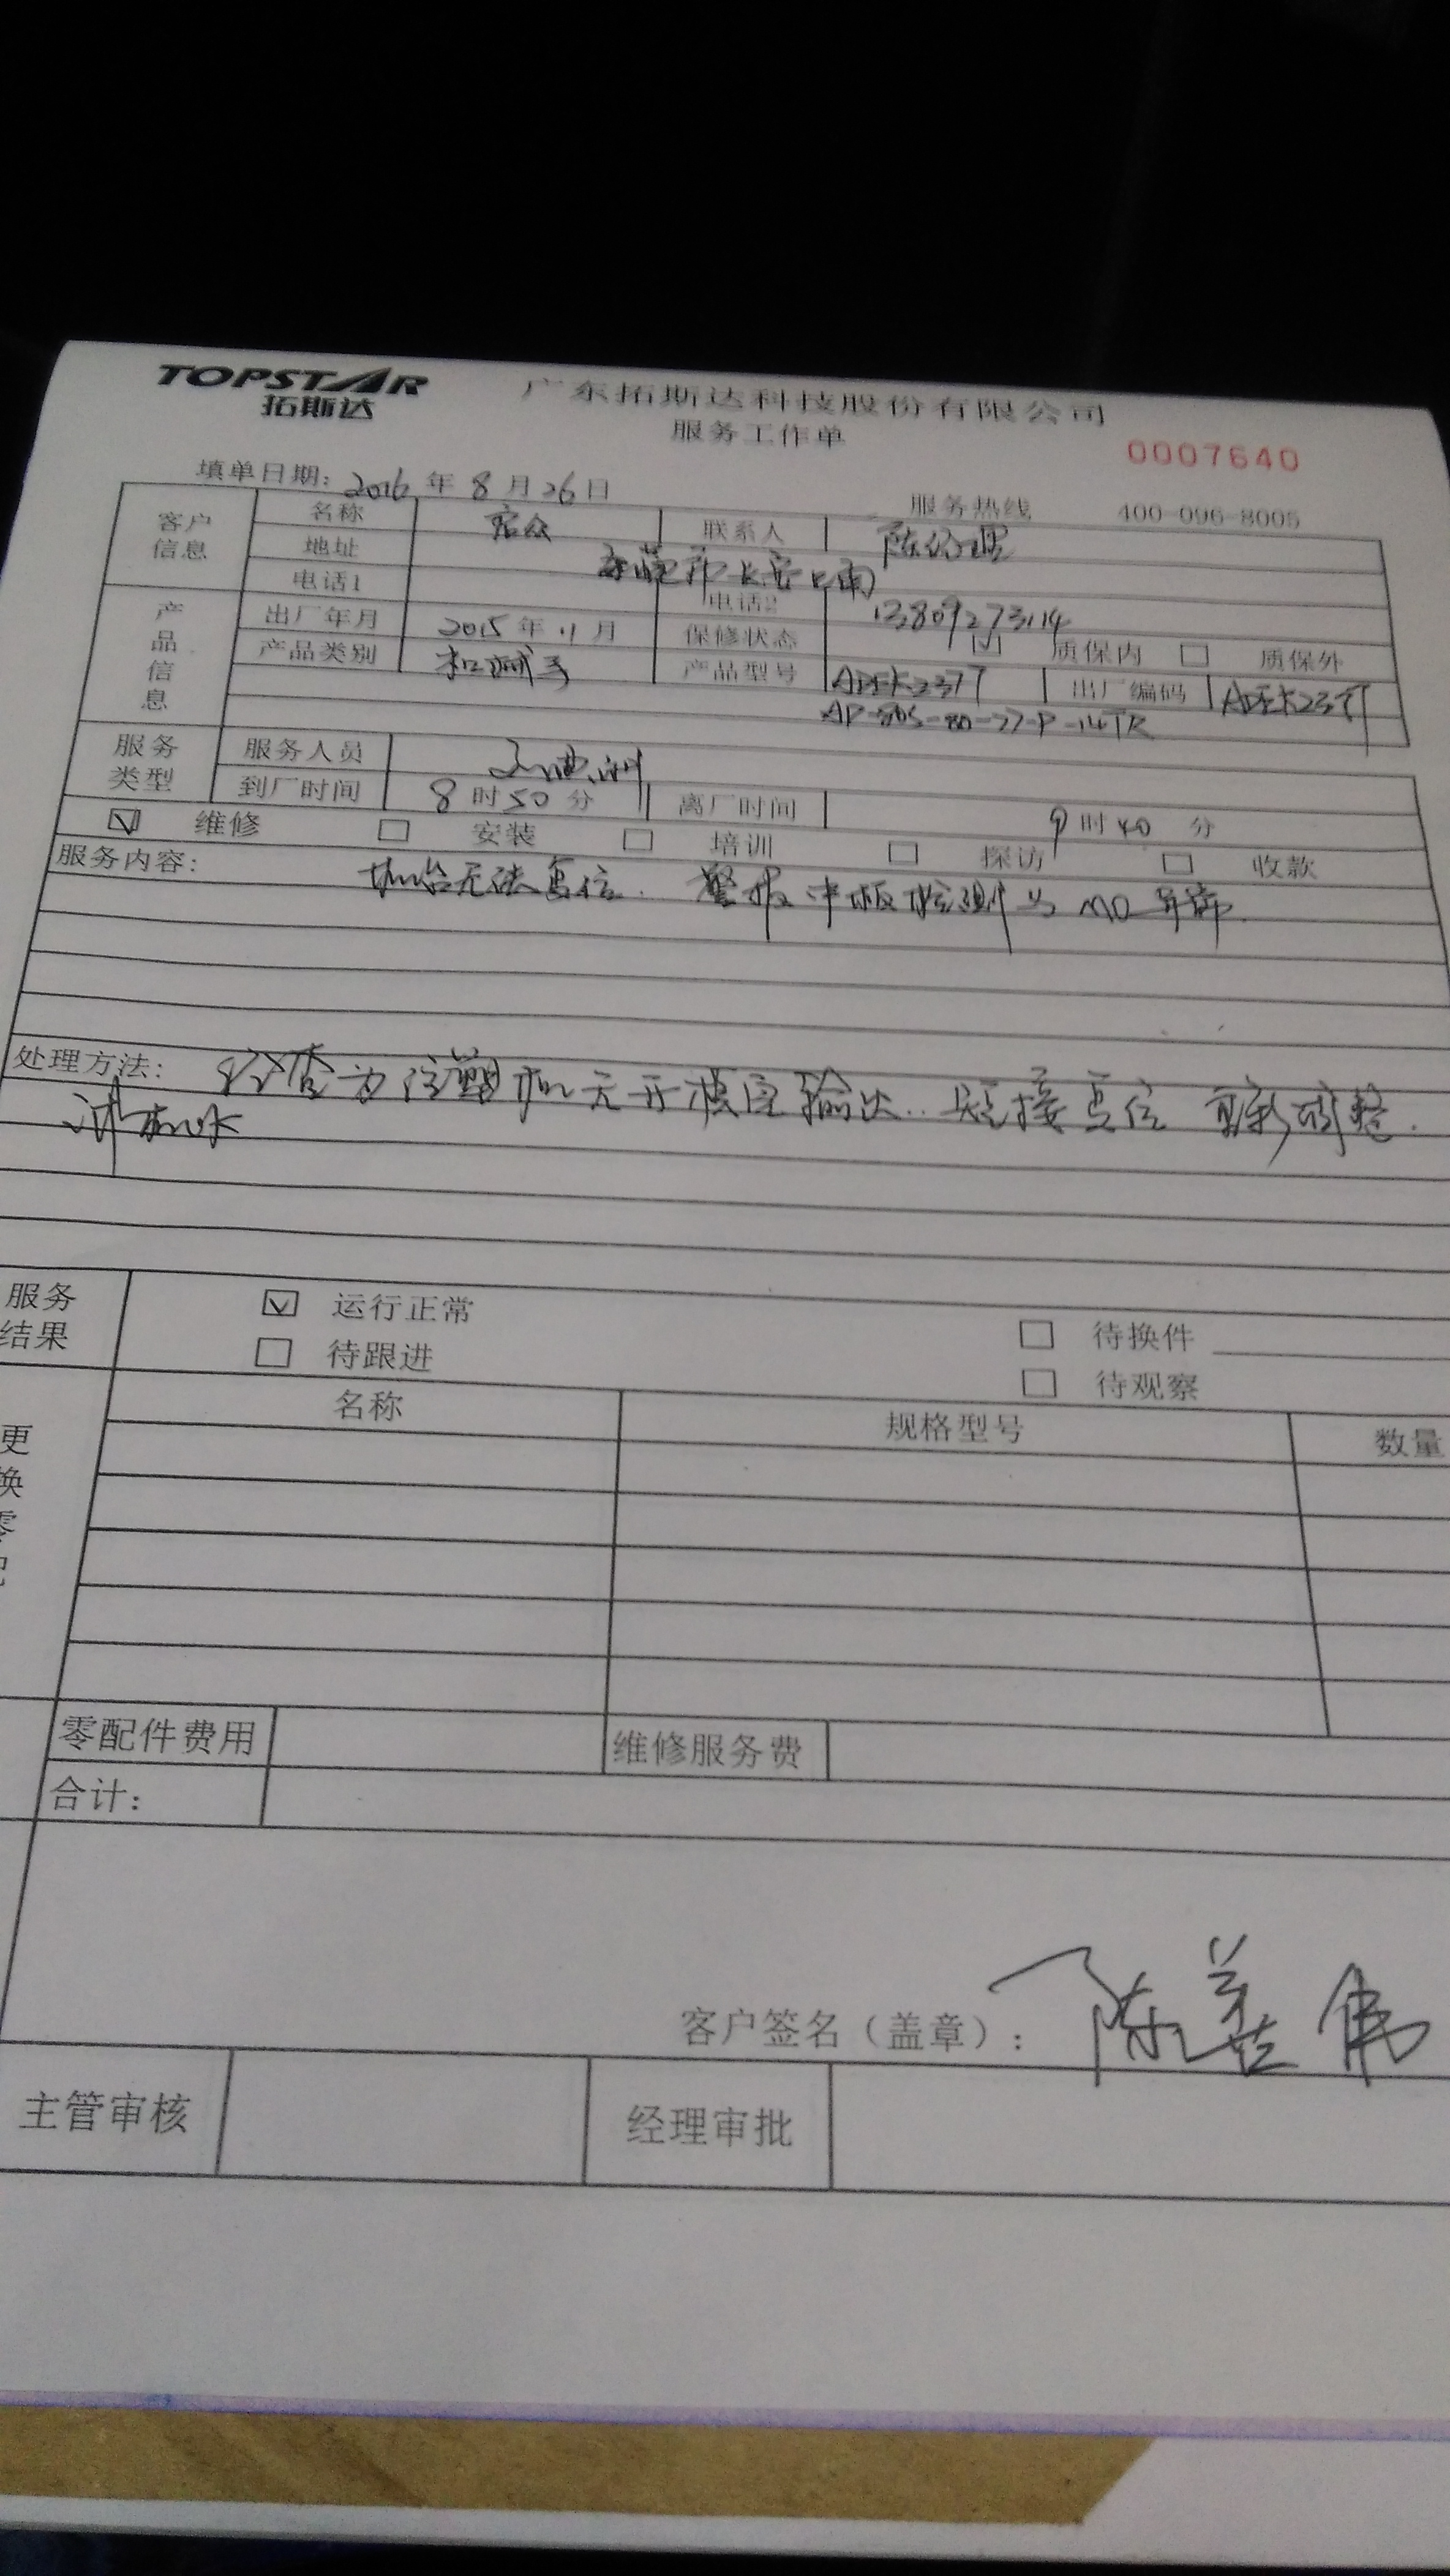 TOPSTAR
拓斯达
广东拓斯达科技股份有限公司
服务工作单
0007640
填单日期: 2016 年 8 月 26 日
服务热线 400-096-8005
客户信息
名称 联系人 陈经理
地址 东莞市长安上南
电话1 电话2 13809273114
产品信息
出厂年月 2015 年 11 月 保修状态 ☑ 质保内 □ 质保外
产品类别 机械手 产品型号 出厂编码
服务类型
服务人员
到厂时间 8 时 50 分 离厂时间 9 时 40 分
☑ 维修 □ 安装 □ 培训 □ 探访 □ 收款
服务内容: 无法复位. 警报中板检测为 异常.
处理方法: 经查为注塑机无开模完输出.. 短接复位 调整.
服务结果
☑ 运行正常 □ 待换件
□ 待跟进 □ 待观察
更换零配
名称 规格型号 数量
零配件费用 维修服务费
合计:
客户签名(盖章): 陈善伟
主管审核 经理审批